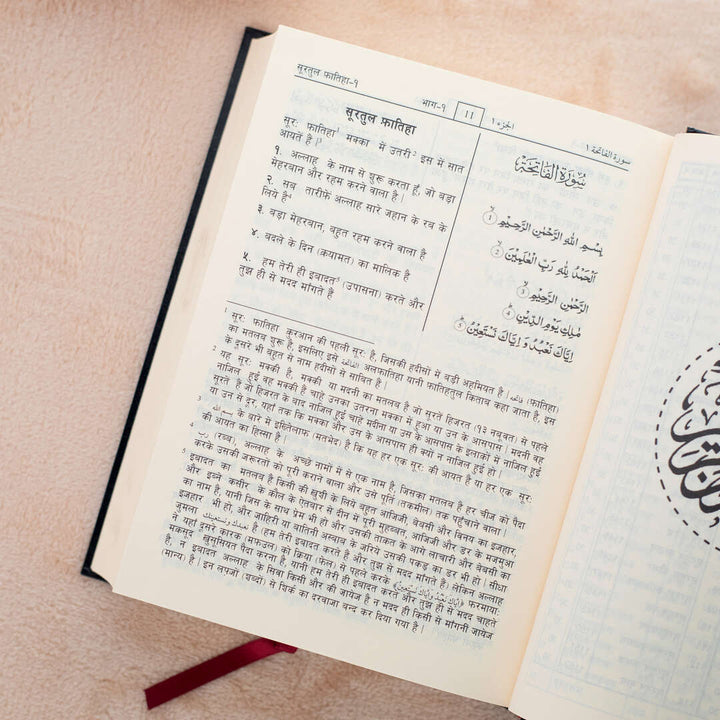 सूरतुल फातिहा-१
भाग-१
11
الجزء ١
سورة الفاتحة ١
सूरतुल फ़ातिहा
सूर: फातिहा¹ मक्का में उतरी² इस में सात
आयतें हैं।³
१. अल्लाह के नाम से शुरू करता हूँ, जो बड़ा
मेहरबान और रहम करने वाला है।
२. सब तारीफें अल्लाह सारे जहान के रब के
लिये है⁴
३. बड़ा मेहरबान, बहुत रहम करने वाला है
४. बदले के दिन (क़यामत) का मालिक है
५. हम तेरी ही इबादत⁵ (उपासना) करते और
तुझ ही से मदद माँगते हैं
سُوْرَةُ الْفَاتِحَةِ
بِسْمِ اللهِ الرَّحْمٰنِ الرَّحِيْمِ ①
اَلْحَمْدُ لِلّٰهِ رَبِّ الْعٰلَمِيْنَ ②
الرَّحْمٰنِ الرَّحِيْمِ ③
مٰلِكِ يَوْمِ الدِّيْنِ ④
اِيَّاكَ نَعْبُدُ وَ اِيَّاكَ نَسْتَعِيْنُ ⑤
¹ सूर: फातिहा क़ुरआन की पहली सूर: है, जिसकी हदीसों में बड़ी अहमियत है। فاتحه (फातिहा)
का मतलब शुरू है, इसलिए इसे الفاتحة अलफातिहा यानी फातिहतुल किताब कहा जाता है, इस
के इसरे भी बहुत से नाम हदीसों से साबित हैं।
² यह सूर: मक्की है, मक्की या मदनी का मतलब है जो सूरतें हिजरत (१३ नबूवत) से पहले
नाजिल हुई वह मक्की हैं चाहे उनका उतरना मक्का में हुआ या उन के आसपास। मदनी वह
सूरतें हैं जो हिजरत के बाद नाजिल हुई चाहे मदीना या उस के आसपास के इलाकों में नाजिल हुई
या उन से दूर, यहाँ तक कि मक्का और उन के आसपास ही क्यों न नाजिल हुई हो।
³ بسم الله के बारे में इख़्तेलाफ (मतभेद) है कि यह हर एक सूर: की आयत है या हर एक सूर:
की आयत का हिस्सा है।
⁴ رب (रब्ब), अल्लाह के अच्छे नामों में से एक नाम है, जिसका मतलब है हर चीज को पैदा
करके उसकी जरूरतों को पूरी कराने वाला और उसे पूर्ति (तकमील) तक पहुँचाने वाला।
⁵ इबादत का मतलब है किसी की खुशी के लिये बहुत आजिजी, बेबसी और विनय का इजहार,
और इब्ने कसीर के कौल के ऐतबार से दीन में पूरी मुहब्बत, आजिजी और डर के मजमुआ
का नाम है, यानी जिस के साथ प्रेम भी हो और उसकी ताकत के आगे लाचारी और बेबसी का
इजहार भी हो, और ज़ाहिरी या बातिनी अस्बाब के जरिये उसकी पकड़ का डर भी हो। सीधा
जुमला نعبدك ونستعينك है (हम तेरी इबादत करते और तुझ से मदद माँगते हैं) लेकिन अल्लाह
ने यहाँ दूसरे कारक (मफ़ऊल) को क्रिया (फेल) से पहले करके ﴿اِيَّاكَ نَعْبُدُ وَاِيَّاكَ نَسْتَعِيْنُ﴾ फरमाया:
मकसूद खुसूसियत पैदा करना है, यानी हम तेरी ही इबादत करते और तुझ ही से मदद चाहते
हैं, न इबादत अल्लाह के सिवा किसी और की जायेज है न मदद ही किसी से माँगनी जायेज
(मान्य) है। इन लफ़जों (शब्दों) से शिर्क का दरवाजा बन्द कर दिया गया है।